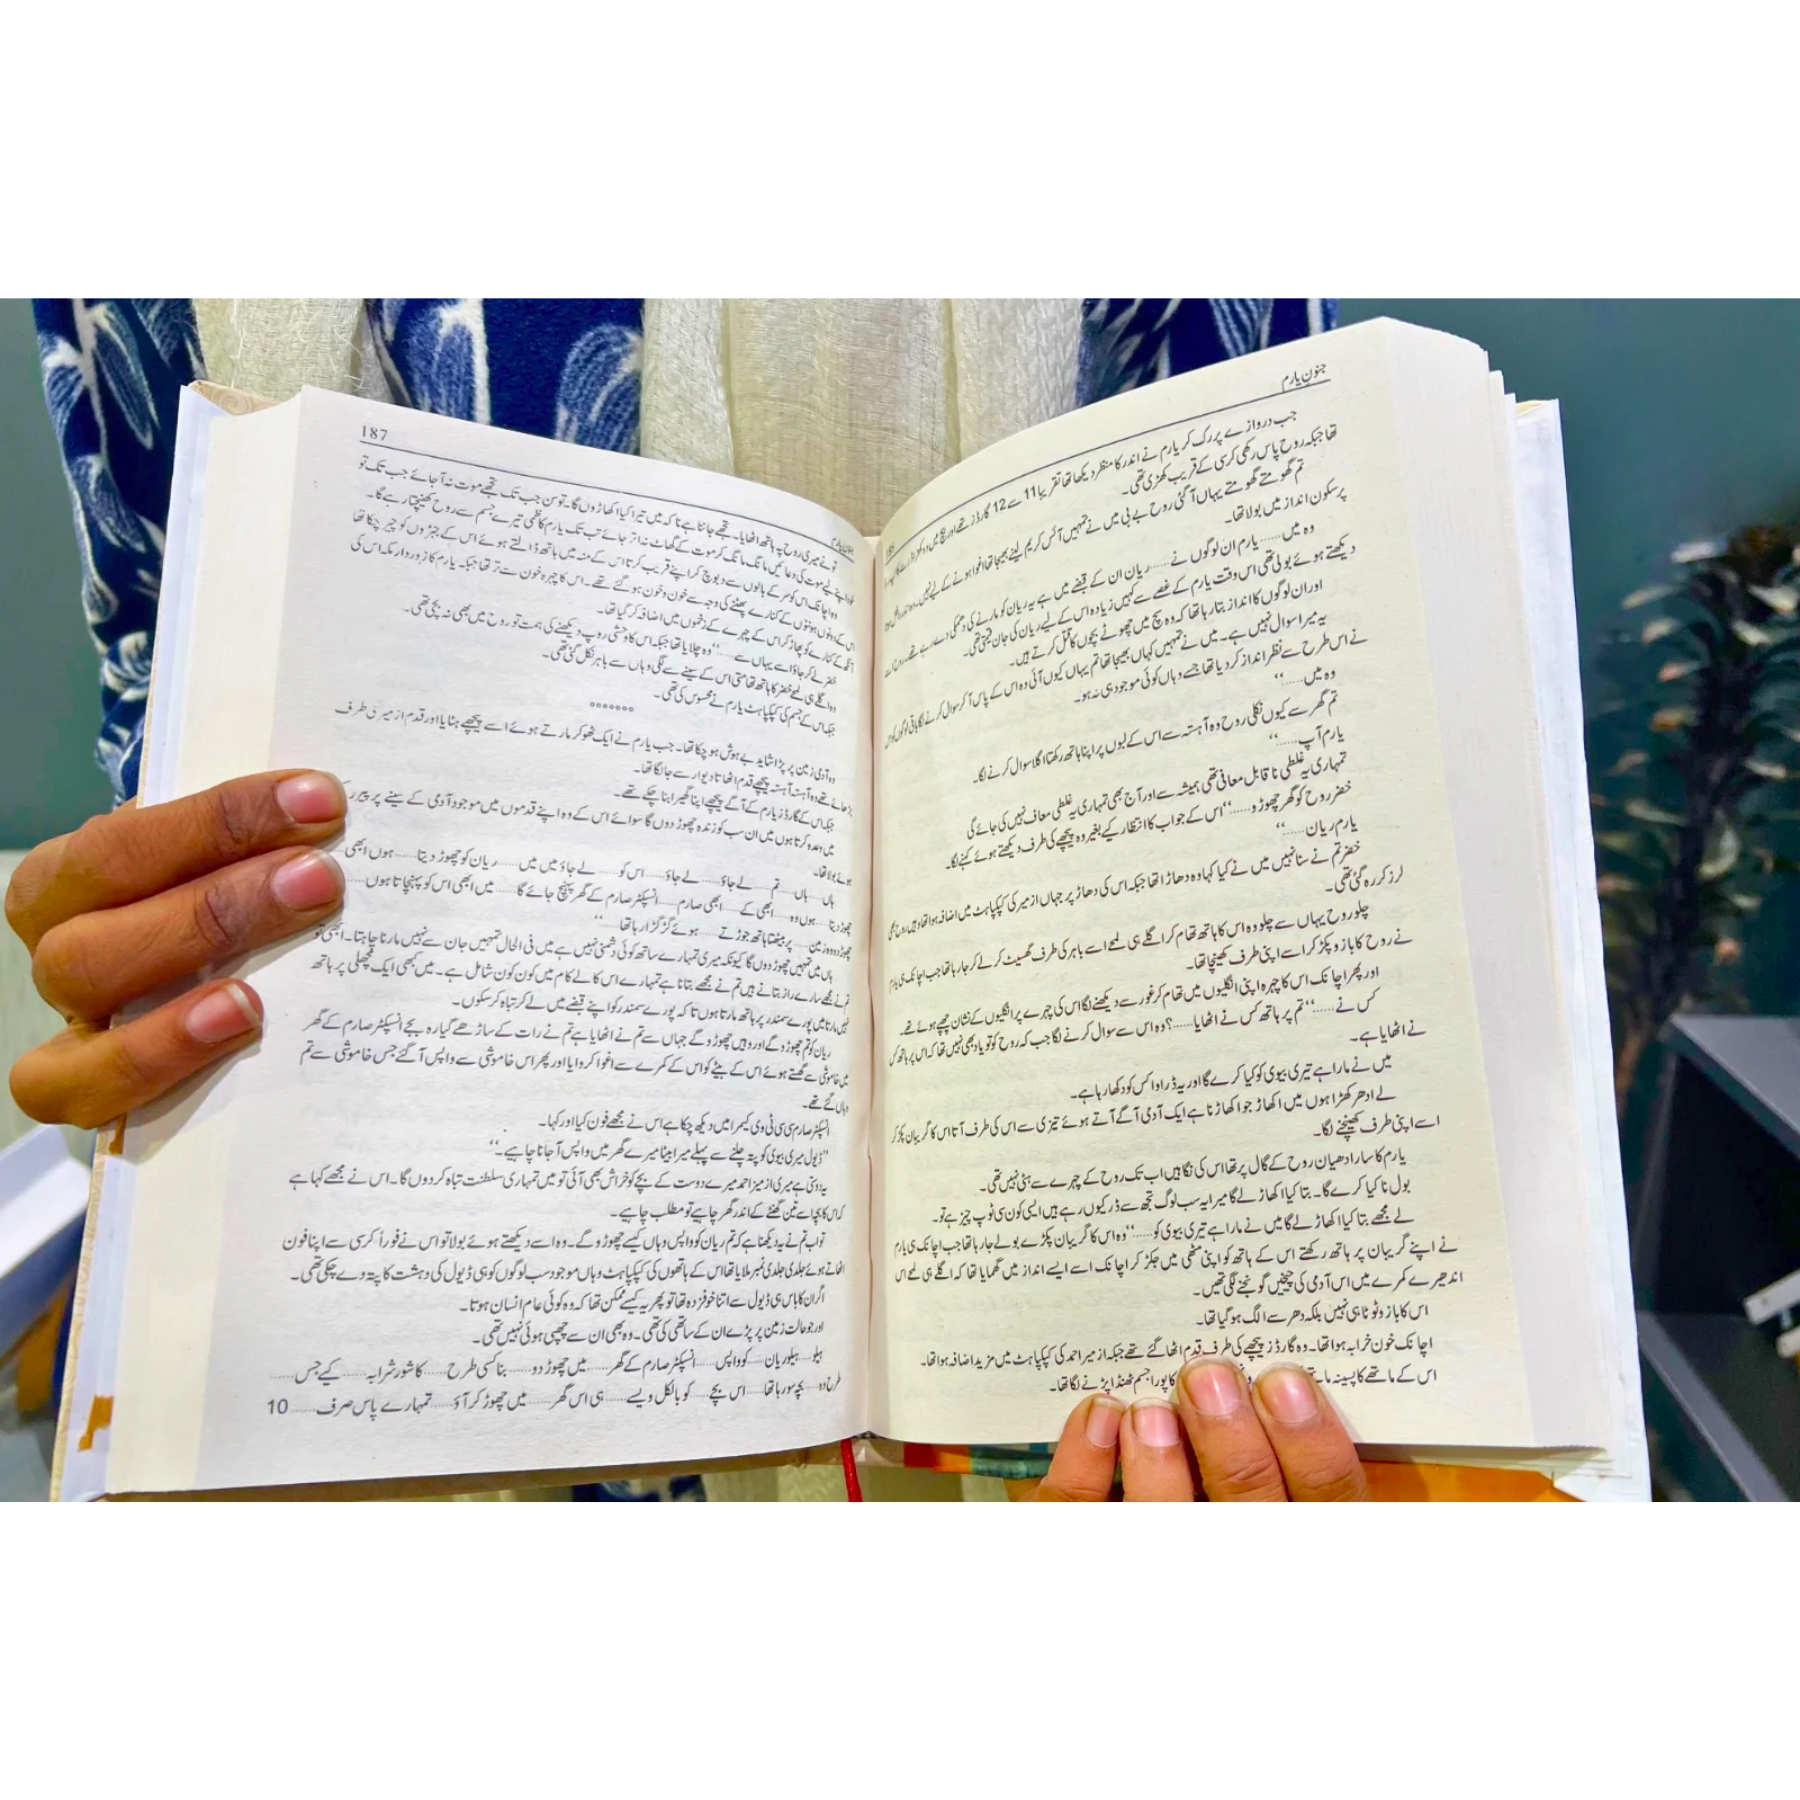 جنون یارم
جب دروازے پر رک کر یارم نے اندر کا منظر دیکھا تھا تقریبا 11 سے 12 گارڈز تھے اور بیچ میں
تھا جبکہ روح پاس رکھی کرسی کے قریب کھڑی تھی۔
تم گھومتے گھومتے یہاں آ گئی روح بے بی میں نے تمہیں آئس کریم لینے بھیجا تھا اغوا ہونے کے لیے نہیں۔
پرسکون انداز میں بولا تھا۔
وہ میں...... یارم ان لوگوں نے...... ریان ان کے قبضے میں ہے یہ ریان کو مارنے کی دھمکی دے رہے تھے۔
دیکھتے ہوئے بولی تھی اس وقت یارم کے غصے سے کہیں زیادہ اس کے لیے ریان کی جان قیمتی تھی۔
اور ان لوگوں کا انداز بتا رہا تھا کہ وہ سچ میں چھوٹے بچوں کا قتل کرتے ہیں۔
یہ میرا سوال نہیں ہے۔ میں نے تمہیں کہاں بھیجا تھا تم یہاں کیوں آئی وہ اس کے پاس آ کر سوال کرنے لگا باقی لوگوں کو اس
نے اس طرح سے نظر انداز کر دیا تھا جسے وہاں کوئی موجود ہی نہ ہو۔
وہ میں......"
تم گھر سے کیوں نکلی روح وہ آہستہ سے اس کے لبوں پر اپنا ہاتھ رکھتا اگلا سوال کرنے لگا۔
یارم آپ......"
تمہاری یہ غلطی نا قابل معافی تھی ہمیشہ سے اور آج بھی تمہاری یہ غلطی معاف نہیں کی جائے گی
خضر روح کو گھر چھوڑو......" اس کے جواب کا انتظار کیے بغیر وہ پیچھے کی طرف دیکھتے ہوئے کہنے لگا۔
یارم ریان......"
خضر تم نے سنا نہیں میں نے کیا کہا وہ دھاڑا تھا جبکہ اس کی دھاڑ پر جہاں ازمیر کی کپکپاہٹ میں اضافہ ہوا تھا وہیں روح بھی
لرز کر رہ گئی تھی۔
چلو روح یہاں سے چلو وہ اس کا ہاتھ تھام کر اگلے ہی لمحے اسے باہر کی طرف گھسیٹ کر لے کر جا رہا تھا جب اچانک ہی یارم
نے روح کا بازو پکڑ کر اسے اپنی طرف کھینچا تھا۔
اور پھر اچانک اس کا چہرہ اپنی انگلیوں میں تھام کر غور سے دیکھنے لگا اس کی چہرے پر انگلیوں کے نشان چھپے ہوئے تھے۔
کس نے......" تم پر ہاتھ کس نے اٹھایا......؟ وہ اس سے سوال کرنے لگا جب کہ روح کو تو یاد بھی نہیں تھا کہ اس پر ہاتھ کس
نے اٹھایا ہے۔
میں نے مارا ہے تیری بیوی کو کیا کرے گا اور یہ ڈراوا کس کو دکھا رہا ہے۔
لے ادھر کھڑا ہوں میں اکھاڑ جو اکھاڑنا ہے ایک آدمی آگے آتے ہوئے تیزی سے اس کی طرف آتا اس کا گریبان پکڑ کر
اسے اپنی طرف کھینچنے لگا۔
یارم کا سارا دھیان روح کے گال پر تھا اس کی نگاہیں اب تک روح کے چہرے سے ہٹی نہیں تھی۔
بول نا کیا کرے گا۔ بتا کیا اکھاڑ لے گا میرا یہ سب لوگ تجھ سے ڈر کیوں رہے ہیں ایسی کون سی توپ چیز ہے تو۔
لے مجھے بتا کیا اکھاڑ لے گا میں نے مارا ہے تیری بیوی کو......" وہ اس کا گریبان پکڑے بولے جا رہا تھا جب اچانک ہی یارم
نے اپنے گریبان پر ہاتھ رکھتے اس کے ہاتھ کو اپنی مٹھی میں جکڑ کر اچانک اسے ایسے انداز میں گھمایا تھا کہ اگلے ہی لمحے اس
اندھیرے کمرے میں اس آدمی کی چیخیں گونجنے لگی تھیں۔
اس کا بازو ٹوٹا ہی نہیں بلکہ دھر سے الگ ہو گیا تھا۔
اچانک خون خرابہ ہوا تھا۔ وہ گارڈز پیچھے کی طرف قدم اٹھا گئے تھے جبکہ ازمیر احمد کی کپکپاہٹ میں مزید اضافہ ہوا تھا۔
اس کے ماتھے کا پسینہ کا پورا جسم ٹھنڈا پڑنے لگا تھا۔
187
تو نے میری روح پہ ہاتھ اٹھایا۔ تجھے جاننا ہے نا کہ میں تیرا کیا اکھاڑوں گا۔ تو سن جب تک تجھے موت نہ آ جائے جب تک تو
خود اپنے لیے موت کی دعائیں مانگ مانگ کر موت کے گھاٹ نہ اتر جائے تب تک یارم کاظمی تیرے جسم سے روح کھینچتا رہے گا۔
وہ اچانک اس کو سر کے بالوں سے دبوچ کر اپنے قریب کرتا اس کے منہ میں ہاتھ ڈالتے ہوئے اس کے جبڑوں کو چیر چکا تھا
اس کے دونوں ہونٹوں کے کنارے پھٹنے کی وجہ سے خون و خون ہو گئے تھے۔ اس کا چہرہ خون سے تر تھا جبکہ یارم کا زوردار مکہ اس کی
آنکھ کے کنارے کو پھاڑ کر اس کے چہرے کے زخموں میں اضافہ کر گیا تھا۔
خضر لے کر جاؤ اسے یہاں سے......" وہ چلایا تھا جبکہ اس کا وحشی روپ دیکھنے کی ہمت تو روح میں بھی نہ بچی تھی۔
وہ اگلے ہی لمحے خضر کا ہاتھ تھامتی اس کے سینے سے لگی وہاں سے باہر نکل گئی تھی۔
جبکہ اس کے جسم کی کپکپاہٹ یارم نے محسوس کی تھی۔
°°°°°°°
وہ آدمی زمین پر پڑا شاید بے ہوش ہو چکا تھا۔ جب یارم نے ایک ٹھوکر مارتے ہوئے اسے پیچھے ہٹایا اور قدم ازمیر کی طرف
بڑھائے تھے وہ آہستہ آہستہ پیچھے قدم اٹھاتا دیوار سے جا لگا تھا۔
جبکہ اس کے گارڈز یارم کے آگے پیچھے اپنا گھیرا بنا چکے تھے۔
میں وعدہ کرتا ہوں میں ان سب کو زندہ چھوڑ دوں گا سوائے اس کے وہ اپنے قدموں میں موجود آدمی کے سینے پر پیر
ہوئے بولا تھا۔
ہاں...... ہاں...... تم...... لے جاؤ...... لے جاؤ...... اس کو...... لے جاؤ میں میں...... ریان کو چھوڑ دیتا...... ہوں ابھی
چھوڑ دیتا...... ہوں وہ...... ابھی کے...... ابھی صارم...... انسپکٹر صارم کے گھر پہنچ جائے گا...... میں ابھی اس کو پہنچاتا ہوں......
چھوڑ دو وہ زمین...... پر بیٹھتا ہاتھ جوڑتے...... ہوئے گڑگڑا رہا تھا......"
ہاں میں تمہیں چھوڑ دوں گا کیونکہ میری تمہارے ساتھ کوئی دشمنی نہیں ہے میں فی الحال تمہیں جان سے نہیں مارنا چاہتا۔ ابھی تو
تم نے مجھے سارے راز بتانے ہیں تم نے مجھے بتانا ہے تمہارے اس کالے کام میں کون کون شامل ہے۔ میں کبھی ایک مچھلی پر ہاتھ
نہیں مارتا میں پورے سمندر پر ہاتھ مارتا ہوں تا کہ پورے سمندر کو اپنے قبضے میں لے کر تباہ کر سکوں۔
ریان کو تم چھوڑو گے اور وہیں چھوڑو گے جہاں سے تم نے اٹھایا ہے تم نے رات کے ساڑھے گیارہ بجے انسپکٹر صارم کے گھر
میں خاموشی سے گھستے ہوئے اس کے بیٹے کو اس کے کمرے سے اغوا کروایا اور پھر اس خاموشی سے واپس آ گئے جس خاموشی سے تم
وہاں گئے تھے۔
انسپکٹر صارم سی سی ٹی وی کیمرا میں دیکھ چکا ہے اس نے مجھے فون کیا اور کہا۔
"ڈیول میری بیوی کو پتہ چلنے سے پہلے میرا بیٹا میرے گھر میں واپس آ جانا چاہیے۔"
یہ دیتی ہے میری ازمیر احمد میرے دوست کے بچے کو خراش بھی آئی تو میں تمہاری سلطنت تباہ کر دوں گا۔ اس نے مجھے کہا ہے
کہ اس کا بچہ اسے تین گھنٹے کے اندر گھر چاہیے تو مطلب چاہیے۔
تو اب تم نے یہ دیکھنا ہے کہ تم ریان کو واپس وہاں کیسے چھوڑو گے۔ وہ اسے دیکھتے ہوئے بولا تو اس نے فوراً کرسی سے اپنا فون
اٹھاتے ہوئے جلدی جلدی نمبر ملایا تھا اس کے ہاتھوں کی کپکپاہٹ وہاں موجود سب لوگوں کو ہی ڈیول کی دہشت کا پتہ دے چکی تھی۔
اگر ان کا باس ہی ڈیول سے اتنا خوفزدہ تھا تو پھر یہ کیسے ممکن تھا کہ وہ کوئی عام انسان ہوتا۔
اور جو حالت زمین پر پڑے ان کے ساتھی کی تھی۔ وہ بھی ان سے چھپی ہوئی نہیں تھی۔
ہیلو...... ہیلو ریان...... کو واپس...... انسپکٹر صارم کے گھر...... میں چھوڑ دو...... بنا کسی طرح...... کا شور شرابہ...... کیے جس......
طرح وہ...... بچہ سو رہا تھا...... اس بچے...... کو بالکل ویسے...... ہی اس گھر...... میں چھوڑ کر آؤ...... تمہارے پاس صرف...... 10